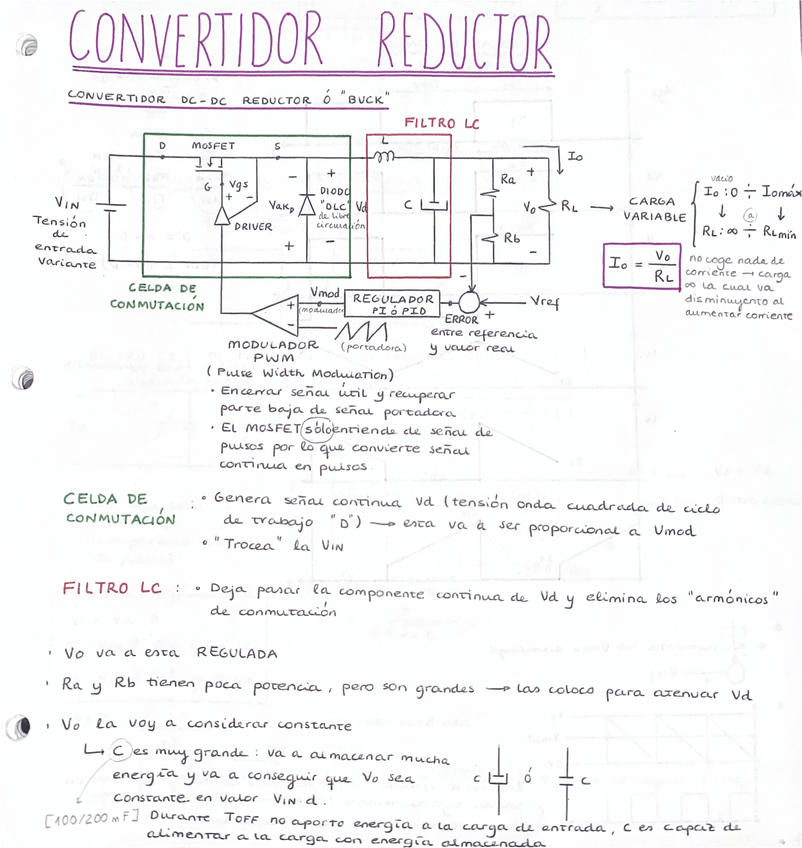 CONVERTIDOR REDUCTOR
CONVERTIDOR DC-DC REDUCTOR Ó "BUCK"
FILTRO LC
D MOSFET S
L
Io
G Vgs
+ -
DRIVER
VIN
Tensión
de
entrada
variante
- +
VAKD
+ -
DIODO
"DLC"
de libre
circulación
Vd
C
Ra
Rb
+
Vo
-
RL
CARGA
VARIABLE
vacío
Io : 0 ÷ Iomáx
↓ (a) ↓
RL : ∞ ÷ RLmín
Io = Vo / RL
no coge nada de
corriente → carga
∞ la cual va
disminuyento al
aumentar corriente
CELDA DE
CONMUTACIÓN
Vmod
(moduladora)
REGULADOR
PI ó PID
-
+
Vref
ERROR
entre referencia
y valor real
+
-
(portadora)
MODULADOR
PWM
(Pulse Width Modulation)
· Encerrar señal útil y recuperar
parte baja de señal portadora
· El MOSFET sólo entiende de señal de
pulsos por lo que convierte señal
continua en pulsos.
CELDA DE
CONMUTACIÓN
: • Genera señal continua Vd (tensión onda cuadrada de ciclo
de trabajo "D") → esta va a ser proporcional a Vmod
• "Trocea" la VIN
FILTRO LC : • Deja pasar la componente continua de Vd y elimina los "armónicos"
de conmutación
· Vo va a esta REGULADA
· Ra y Rb tienen poca potencia, pero son grandes → las coloco para atenuar Vd
· Vo la voy a considerar constante
↳ C es muy grande : va a almacenar mucha
energía y va a conseguir que Vo sea
constante en valor VIN·d.
C ó C
[100/200 mF] Durante TOFF no aporto energía a la carga de entrada, C es capaz de
alimentar a la carga con energía almacenada